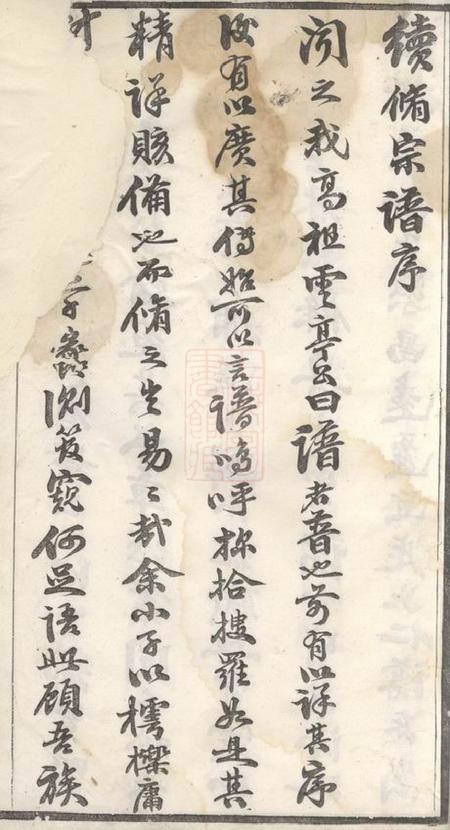 續脩宗譜序
聞之我高祖雲亭公曰譜者普也前有以詳其序
後有以廣其傳始可以言譜嗚呼採拾搜羅如且其
精詳賅備也而脩之豈易易哉余小子以樗櫟庸
子蠡測管窺何足語此顧吾族